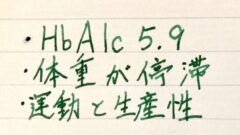 ・HbA1c 5.9
・体重が停滞
・運動と生産性